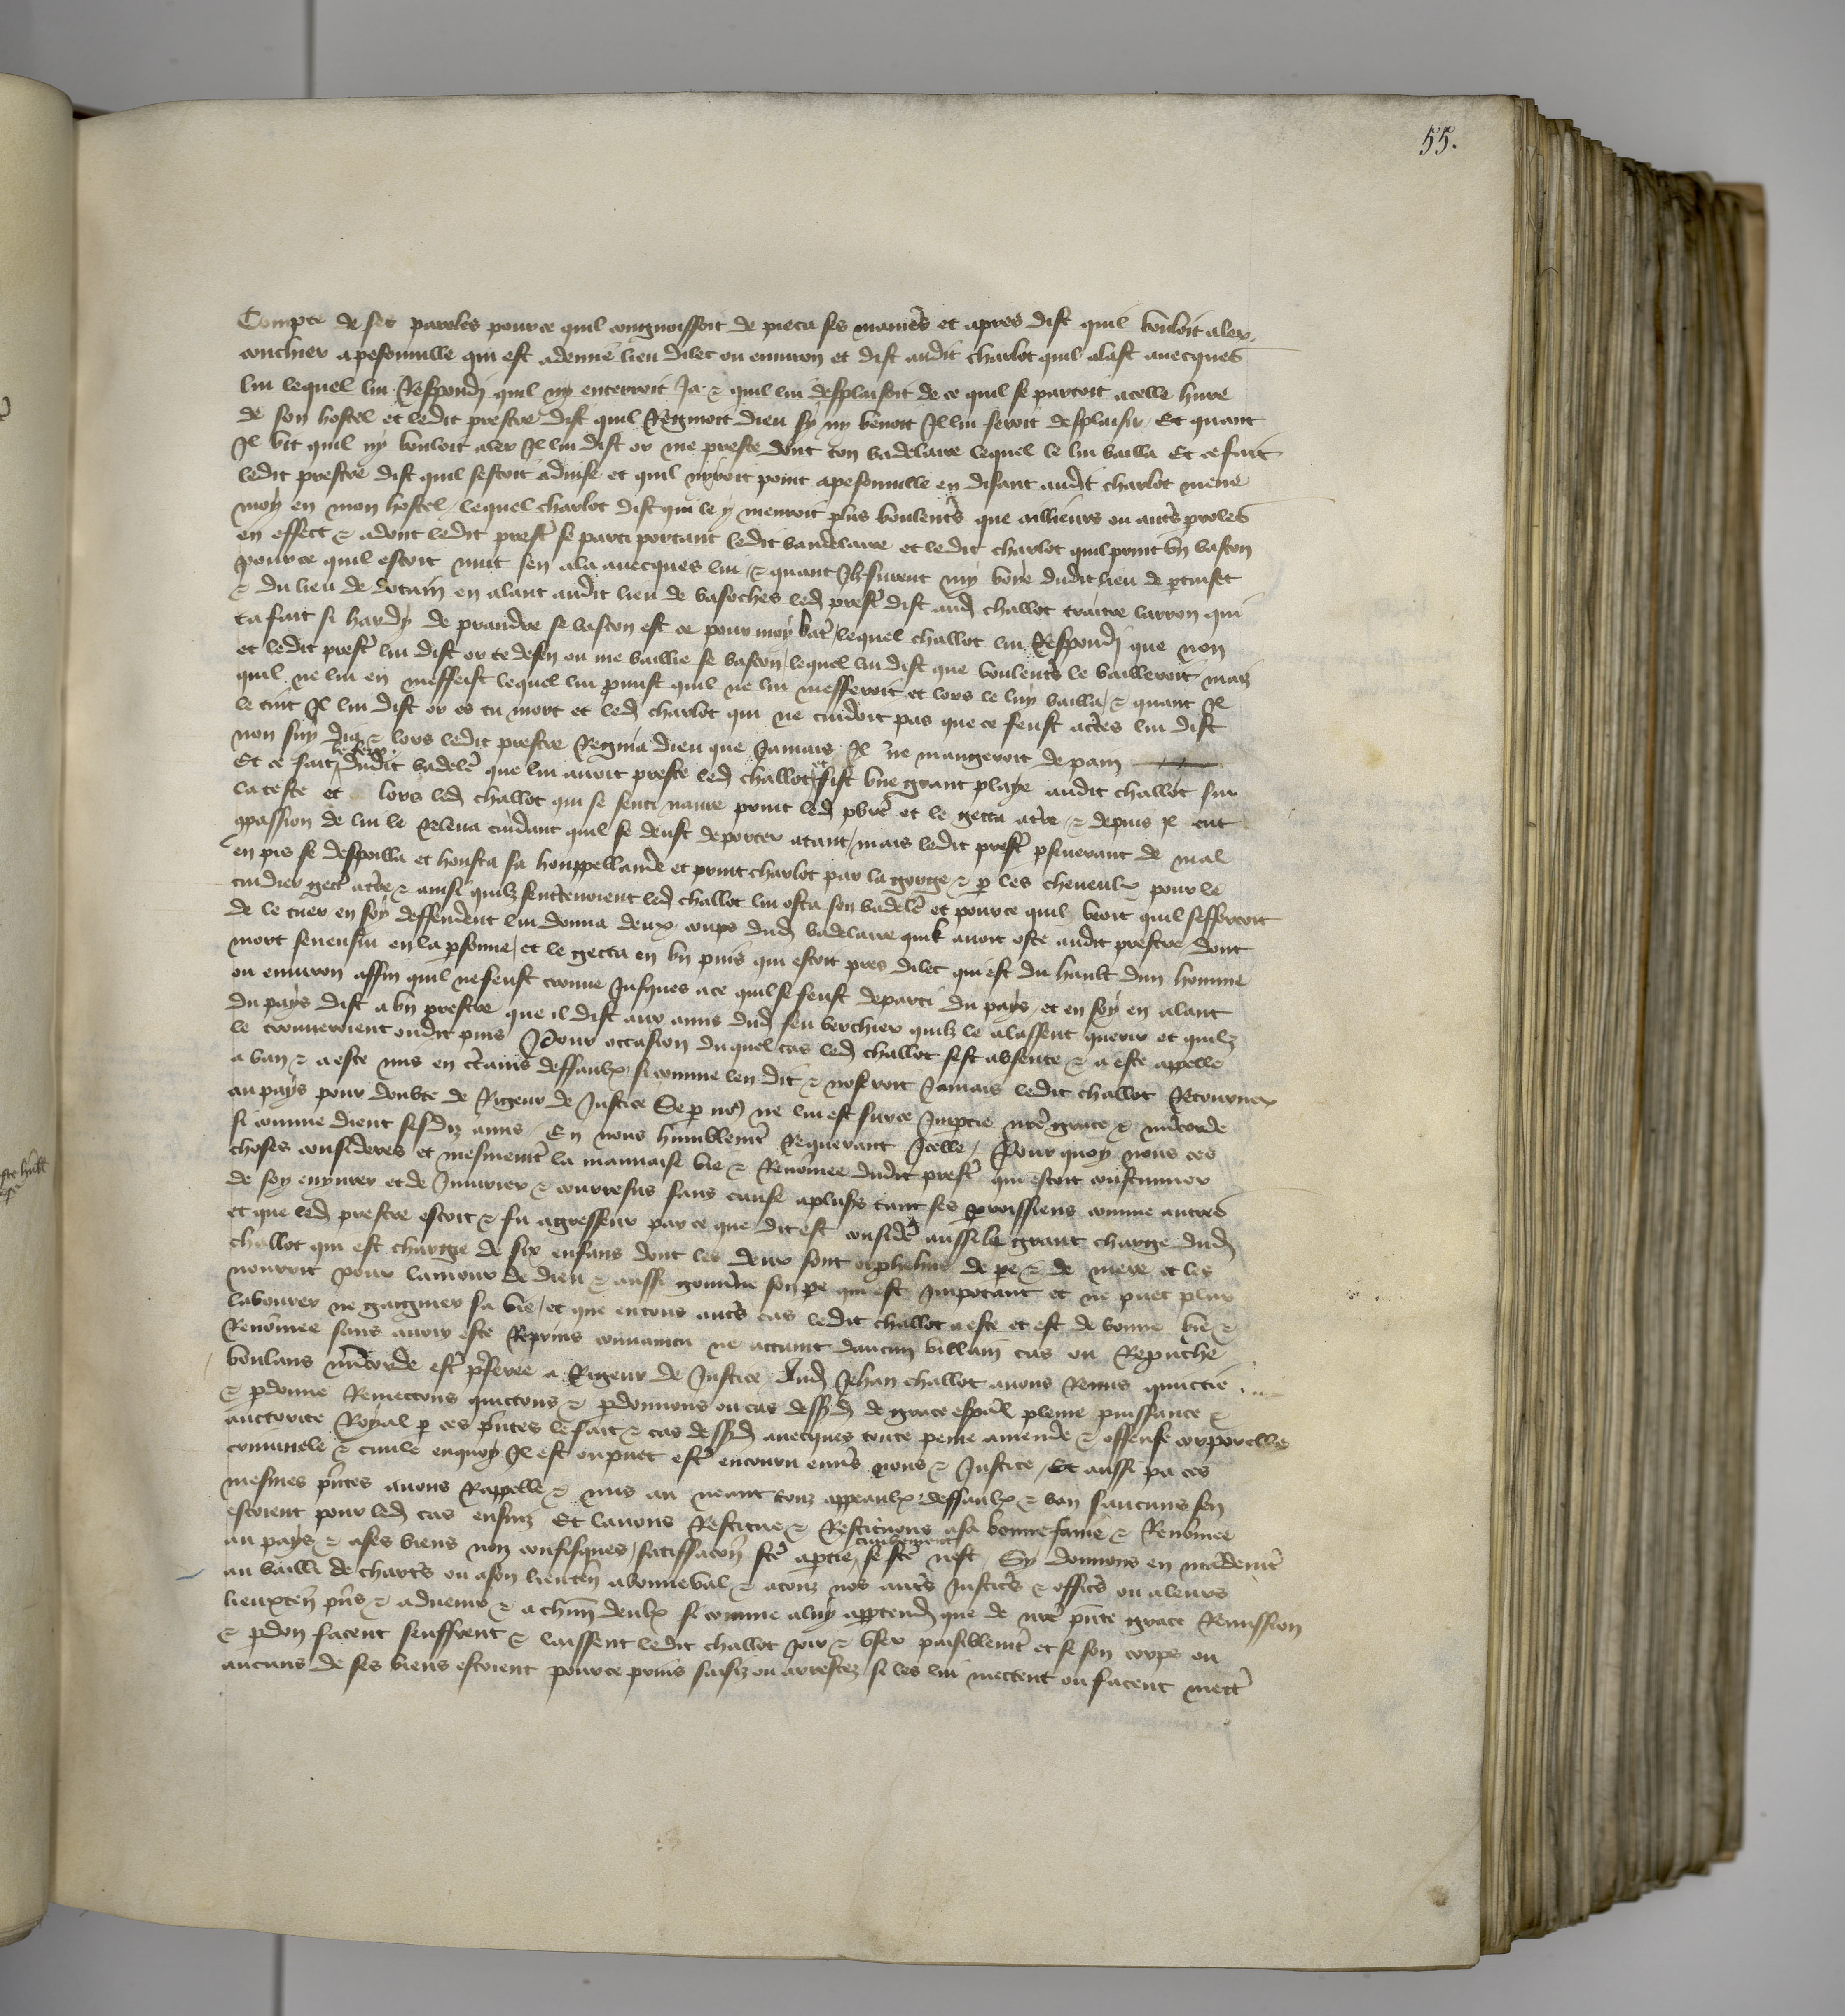 55.
Compte de ses paroles pource quil congnoissoit de pieca ses manieres et apres dist quil vouloit aler
couchier a pesonville qui est a demie lieu dilec ou environ et dist audit charlot quil alast avecques
lui lequel lui Respondi quil ny enterroit Ja & quil lui desplaisoit de ce quil se partoit a celle hure
de son hostel et ledit prestre dist quil Regnioit dieu sy ny venoit Il lui feroit desplaisir Et quant
Il vit quil ny vouloit aler Il lui dist or me preste dont ton badelaire lequel le lui bailla Et ce fait
ledit prestre dist quil sestoit advise et quil nyroit point a pesonville en disant audit charlot mene
moy en mon hostel lequel charlot dist qui le y menroit plus voulentrs que ailleurs ou autrs proles
en effect & adont ledit prestr se parti portant ledit badelaire et ledit charlot quil print un baston
pource quil estoit nuit sen ala avecques lui & quant Ilz furent my voye dudit lieu de
& du lieu de en alant audit lieu de basoches led prestr dist aud challot traitre larron qui
ta fait si hardy de prandre se baston est ce pour moy batr lequel challot lui Respondi que non
et ledit prestr lui dist or te defen ou me baillie se baston lequel lui dist que voulentrs le bailleroit mais
quil ne lui en meffeist lequel lui pmist quil ne lui mefferoit et lors le luy bailla & quant Il
le tint Il lui dist or es tu mort et led charlot qui ne cuidoit pas que ce feust actes lui dist
non suy dia & lors ledit prestre Regnia dieu que Jamais Il ne mangeroit de pain
Et ce fait dudit badelr que lui avoit preste led challot et fist une grant playe audit challot sur
la teste et lors led challot qui se senti navre print led pbre et le gecta atrre & depuis Il eut
qpassion de lui le Releva cuidant quil se deust deporter atant mais ledit prestr pseverant de mal
en pis se despoilla et housta sa houppellande et print charlot par la gorge & p les cheveulx pour le
cuidier gectr atrre & ainsi quilz sentretenoient led challot lui osta son badelr et pource quil veoit quil sefforcoit
de le tuer en soy deffendent lui donna deux coups dud badelaire quil avoit oste audit prestre dont
mort sen ensui en la psonne et le gecta en un puis qui estoit pres dilec qui est du hault dun homme
ou environ affin quil ne feust trouve Jusques a ce quil se feust departi du pays et en soy en alant
du pays dist a un prestre que il dist aux amis dud feu verchier quilz le alassent querir et quilz
le trouveroient oudit puis Pour occasion duquel cas led challot sest absente & a este appelle
a ban & a este mis en crtains deffaulx si comme len dit & noseroit Jamais ledit challot Retourner
au pays pour doubte de Rigeur de Justice Se p nos ne lui est surce Imptie nre grace & mricorde
si comme dient sesdiz amis En nous humblemt Requerant Icelle Pour quoy nous ces
choses considerees et mesmemt la mauvaise vie & Renommee dudit prestr qui estoit coustumier
de soy enyvrer et de Injurier & courresus sans cause a plusrs tant ses proissiens comme autres
et que led prestre estoit & fu agresseur par ce que dit est considr aussi la grant charge dud
challot qui est chargie de six enfans dont les deux sont orphelins de pe & de mere et les
nourrit pour lamour de dieu & aussi gouvrne son pe qui est Impotant et ne puet plus
labourer ne gaigner sa vie et que en tous autrs cas ledit challot a este et est de bonne vie &
Renommee sans avoir este Repris convaincu ne actaint daucun villain cas ou Repuche
voulans mricorde estr prferee a Rigeur de Justice Aud Jehan challot avons Remis quictie
& pdonne Remectons quictons & pdonnons ou cas dessusd de grace espal pleine puissance &
auctorite Royal p ces prntes le fait & cas dessusd avecques toute peine amende & offense corporelle
criminele & civile en quoy Il est ou puet estr encouru envrs nous & Justice Et aussi pa ces
mesmes prntes avons Rappelle & mis au neant touz appeaulx deffaulx & ban saucuns sen
estoient pour led cas ensuiz Et lavons Restitue & Restituons a sa bonne fame & Renommee
au pays & a ses biens non confisques satiffacon fcte a ptie civilement se fcte nest Sy donnons en mandemt
au bailli de chartrs ou a son lieuten a bonneval & a touz nos autrs Justicrs & officrs ou a leurs
lieuxten prns & advenir & a chun deulx si comme a luy apptendr que de nre prnte grace Remission
& pdon facent seuffrent & laissent ledit challot joir & user paisiblemt et se son corps ou
aucuns de ses biens estoient pource prins saisiz ou arrestez si les lui mectent ou facent mectr